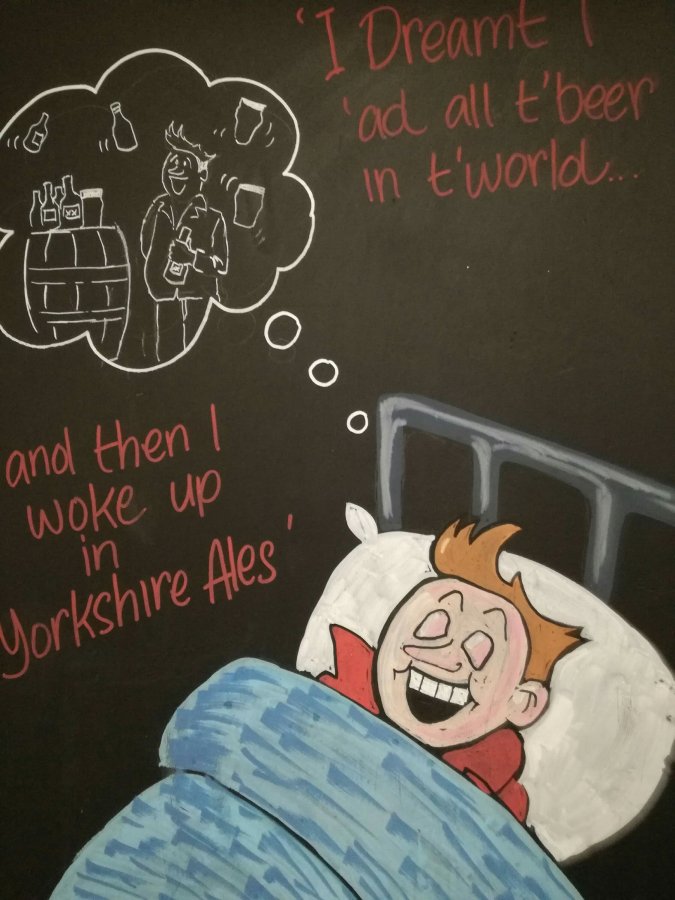 'I Dreamt I
'ad all t'beer
in t'world...
and then I
woke up
in
Yorkshire Ales'